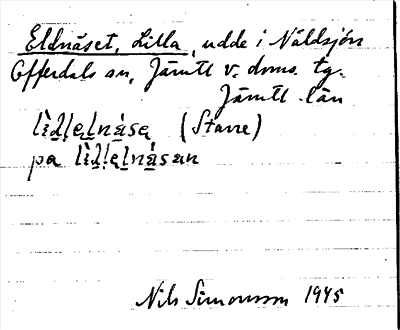 Eldnäset, Litla, udde i Näldsjön
Offerdals sn, Jämtl v. doms. tg.
Jämtl. län
lìḏḷęḻnáse̱ (Starre)
pa lìḏḷęḻnásan
Nils Simonsson 1945